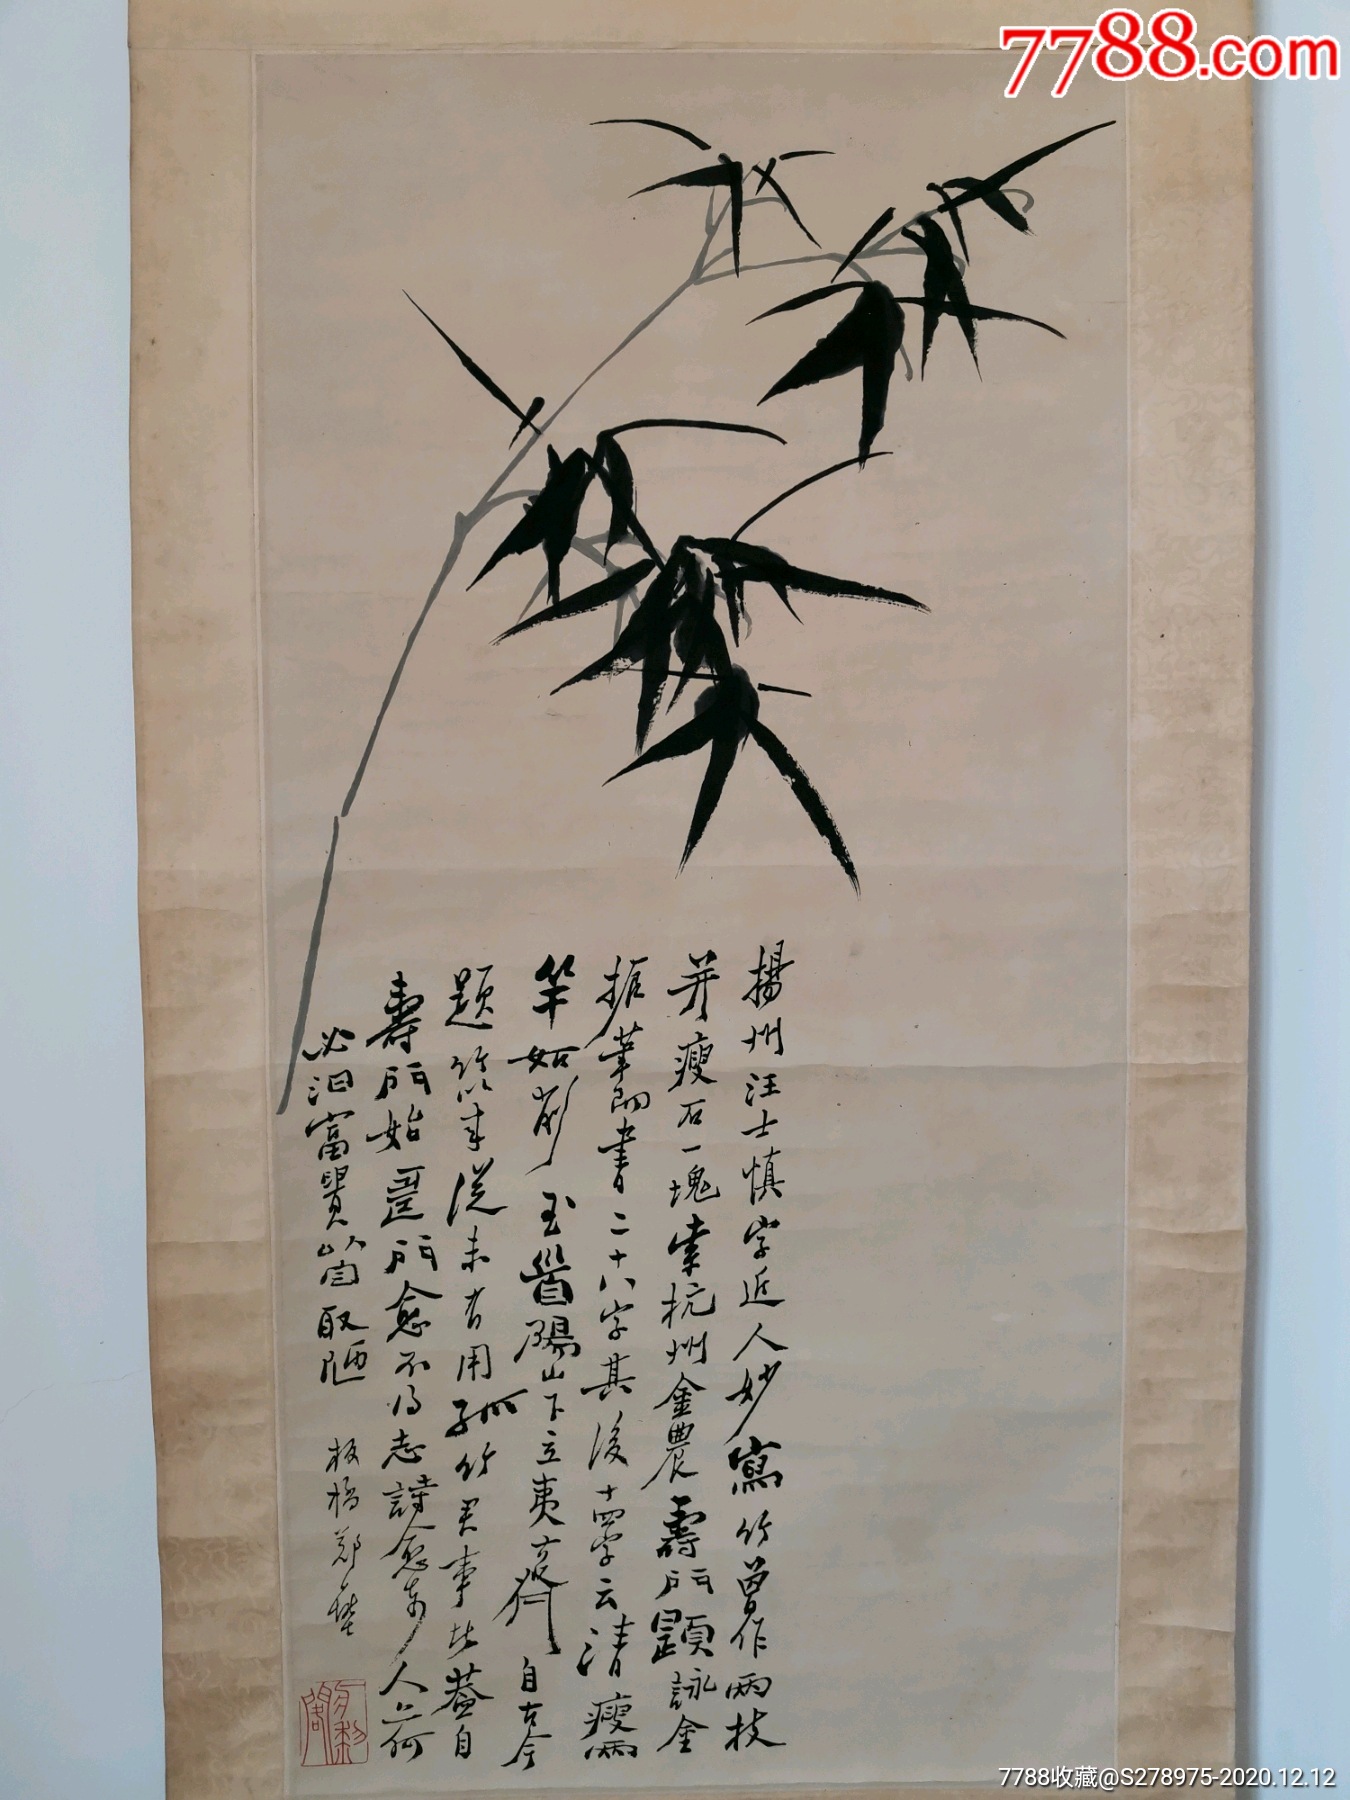 7788.com
揚州汪士慎字近人妙寫竹曾作兩枝
并瘦石一塊索杭州金農壽門題詠金
振筆而書二十八字其後十四字云清瘦兩
竿如削玉首陽山下立夷齊自古今
題竹以來從未有用孤竹君事者蓋自
壽門始壽門愈不得志詩愈奇人亦何
必汩富貴以自取陋
板橋鄭燮
7788收藏@S278975-2020.12.12